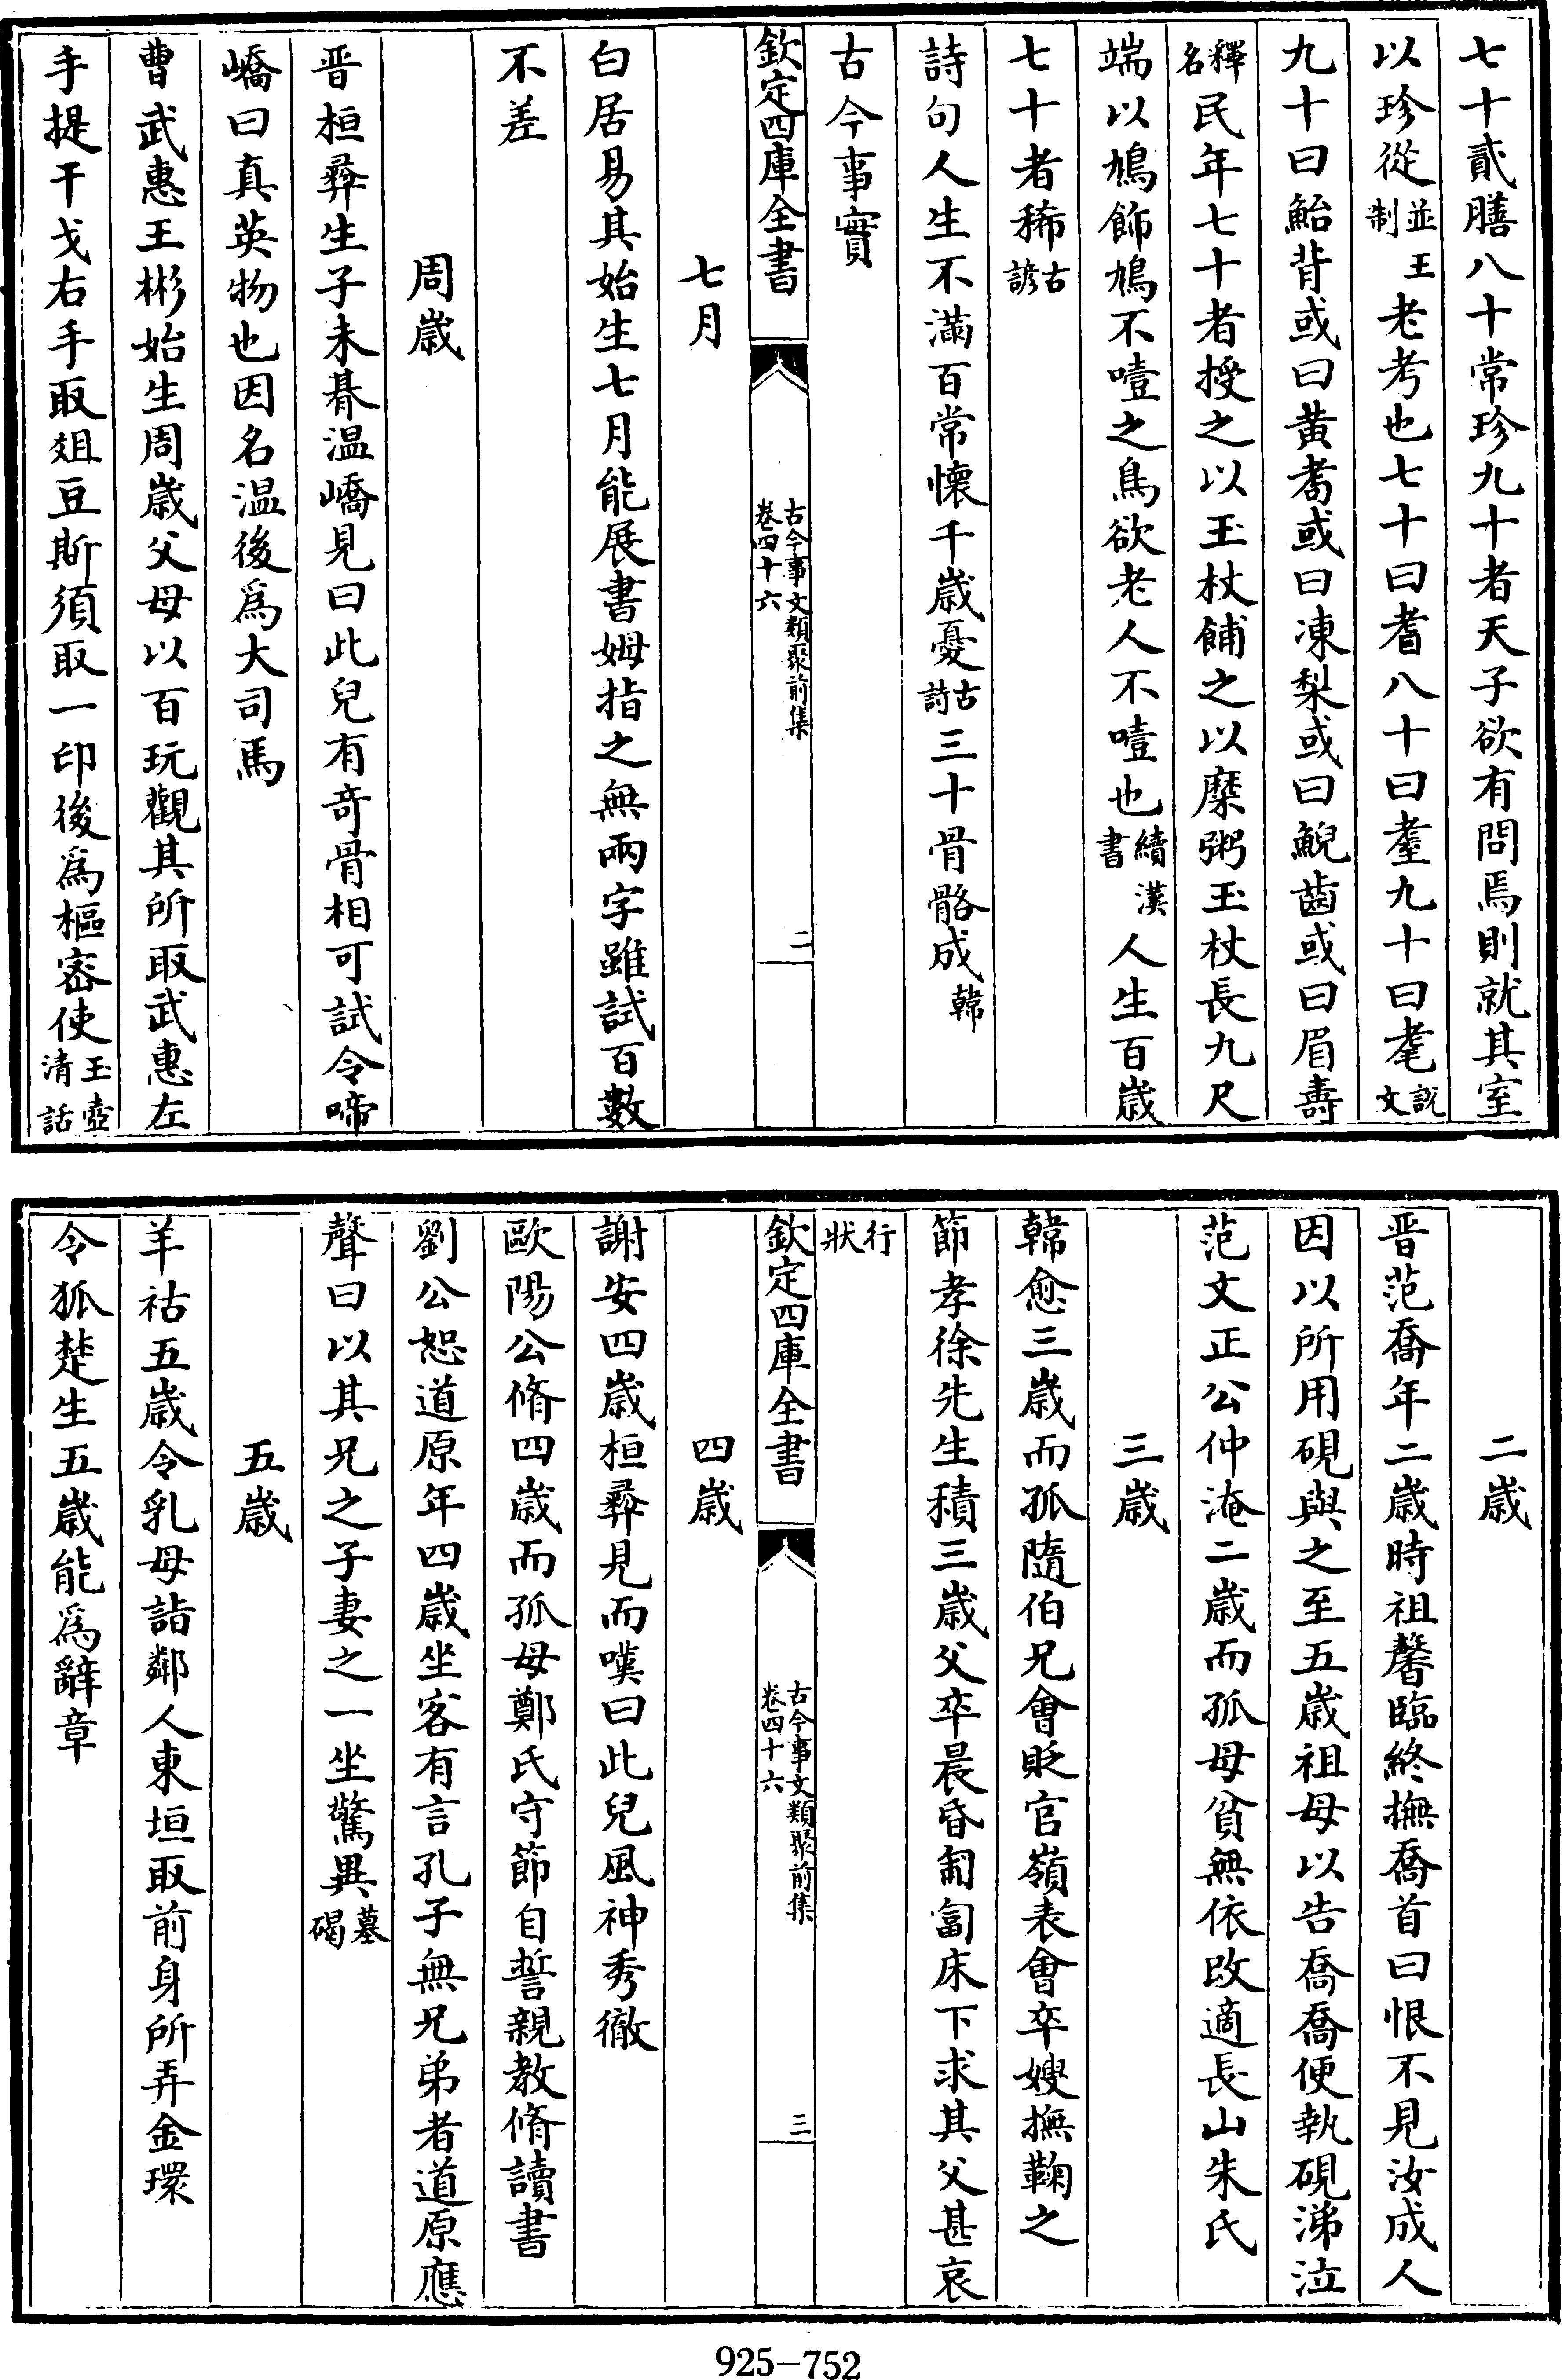 七十貳膳八十常珍九十者天子欲有問焉則就其室
以珍從並王制老考也七十曰耆八十曰耋九十曰耄說文
九十曰鮐背或曰黄耇或曰凍梨或曰鯢齒或曰眉壽
釋名民年七十者授之以玉杖餔之以糜粥玉杖長九尺
端以鳩飾鳩不噎之鳥欲老人不噎也續漢書人生百歲
七十者稀古諺
詩句人生不滿百常懷千歲憂古詩三十骨骼成韓
古今事實
欽定四庫全書
古今事文類聚前集
卷四十六
二
七月
白居易其始生七月能展書姆指之無兩字雖試百數
不差
周歲
晋桓彝生子未朞温嶠見曰此兒有奇骨相可試令啼
嶠曰真英物也因名温後爲大司馬
曹武惠王彬始生周歲父母以百玩觀其所取武惠左
手提干戈右手取俎豆斯須取一印後爲樞密使玉壺清話
二歲
晋范喬年二歲時祖馨臨終撫喬首曰恨不見汝成人
因以所用硯與之至五歲祖母以告喬喬便執硯涕泣
范文正公仲淹二歲而孤母貧無依改適長山朱氏
三歲
韓愈三歲而孤隨伯兄會貶官嶺表會卒嫂撫鞠之
節孝徐先生積三歲父卒晨昏匍匐床下求其父甚哀
行狀
欽定四庫全書
古今事文類聚前集
卷四十六
三
四歲
謝安四歲桓彝見而嘆曰此兒風神秀徹
歐陽公脩四歲而孤母鄭氏守節自誓親教脩讀書
劉公恕道原年四歲坐客有言孔子無兄弟者道原應
聲曰以其兄之子妻之一坐驚異墓碣
五歲
羊祜五歲令乳母詣鄰人東垣取前身所弄金環
令狐楚生五歲能爲辭章
925-752